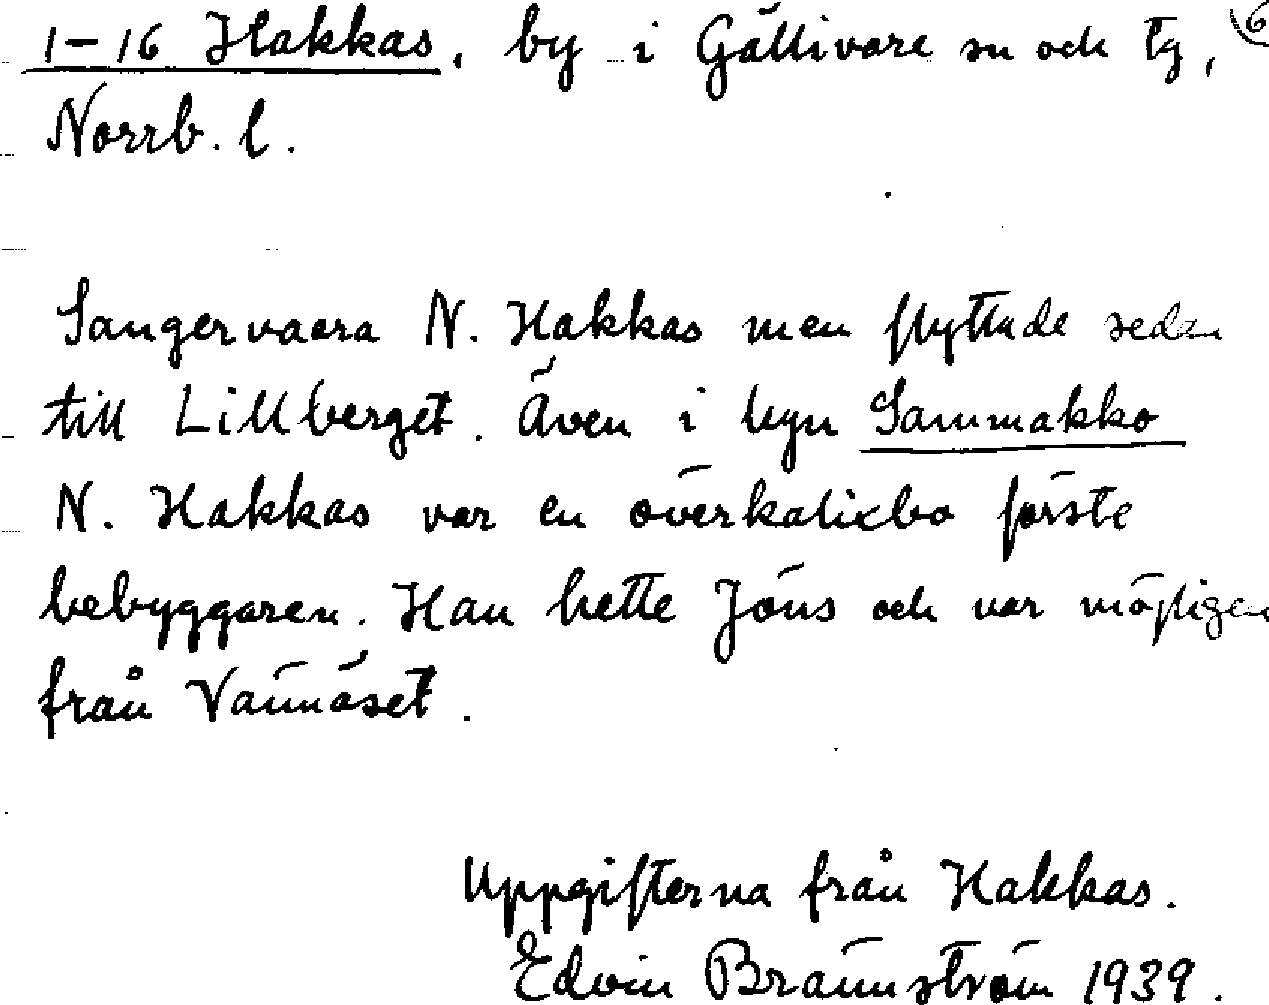 1-16 Hakkas, by i Gällivare sn och tg, 6
Norrb. l.
Sangervaara N. Hakkas men flyttade sedan
till Lillberget. Även i byn Sammakko
N. Hakkas var en överkalixbo förste
bebyggaren. Han hette Jöns och var möjligen
från Vännäset.
Uppgifterna från Hakkas.
Edvin Brännström 1939.